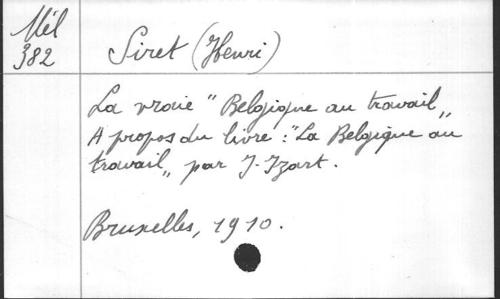 Mél
382
Siret (Henri)
La vraie " Belgique au travail „
A propos du livre : "La Belgique au
travail „ par J. Izart.
Bruxelles, 1910.